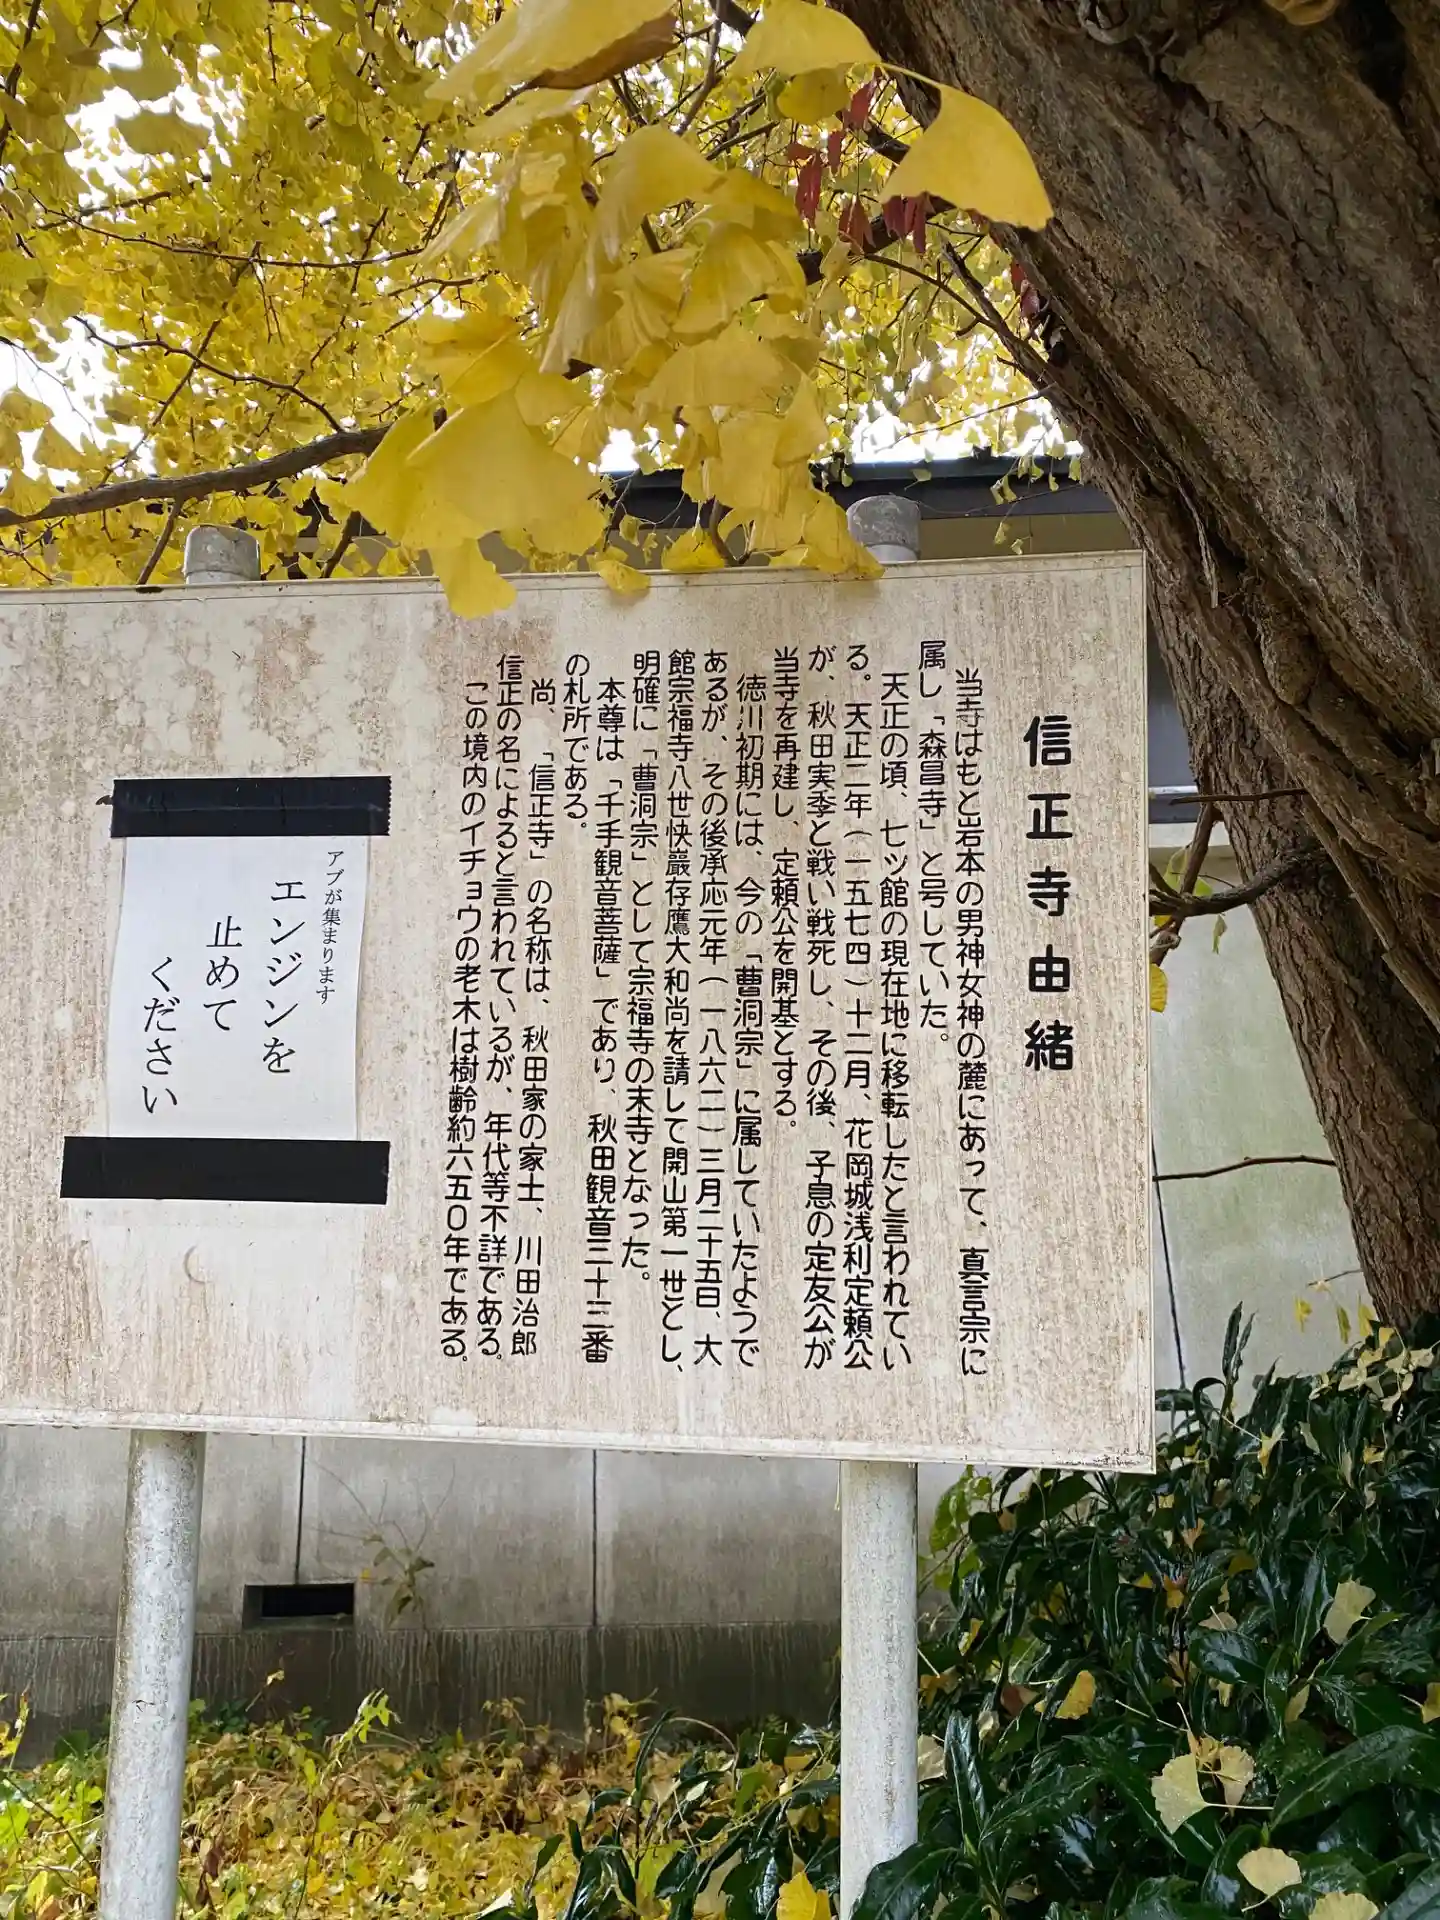 信正寺由緒
当寺はもと岩本の男神女神の麓にあって、真言宗に
属し「森昌寺」と号していた。
天正の頃、七ッ館の現在地に移転したと言われてい
る。天正二年(一五七四)十二月、花岡城浅利定頼公
が、秋田実季と戦い戦死し、その後、子息の定友公が
当寺を再建し、定頼公を開基とする。
徳川初期には、今の「曹洞宗」に属していたようで
あるが、その後承応元年(一八六二)三月二十五日、大
館宗福寺八世快巖存鷹大和尚を請して開山第一世とし、
明確に「曹洞宗」として宗福寺の末寺となった。
本尊は「千手観音菩薩」であり、秋田観音三十三番
の札所である。
尚、「信正寺」の名称は、秋田家の家士、川田治郎
信正の名によると言われているが、年代等不詳である。
この境内のイチョウの老木は樹齢約六五〇年である。
アブが集まります
エンジンを
止めて
ください